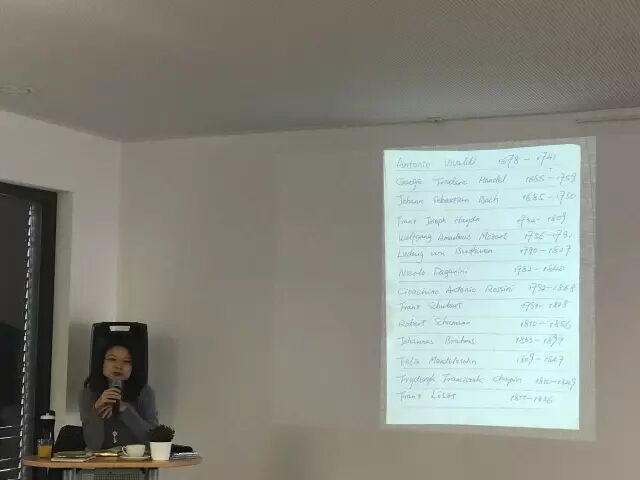 Antonio Vivaldi 1678 - 1741
Handel 1685 - 1759
Johann Sebastian Bach 1685 - 1750
Franz Joseph Haydn 1732 - 1809
Wolfgang Amadeus Mozart 1756 - 1791
Ludwig van 1827
Nicolo Paganini 1782 - 1840
Gioachino Antonio Rossini 1792 - 1868
Franz Schubert
Robert Schumann 1810 - 1856
Johannes Brahms 1897
Felix Mendelssohn 1809 - 1847
Fryderyk Franciszek Chopin 1810 - 1849
Franz Liszt 1811 - 1886